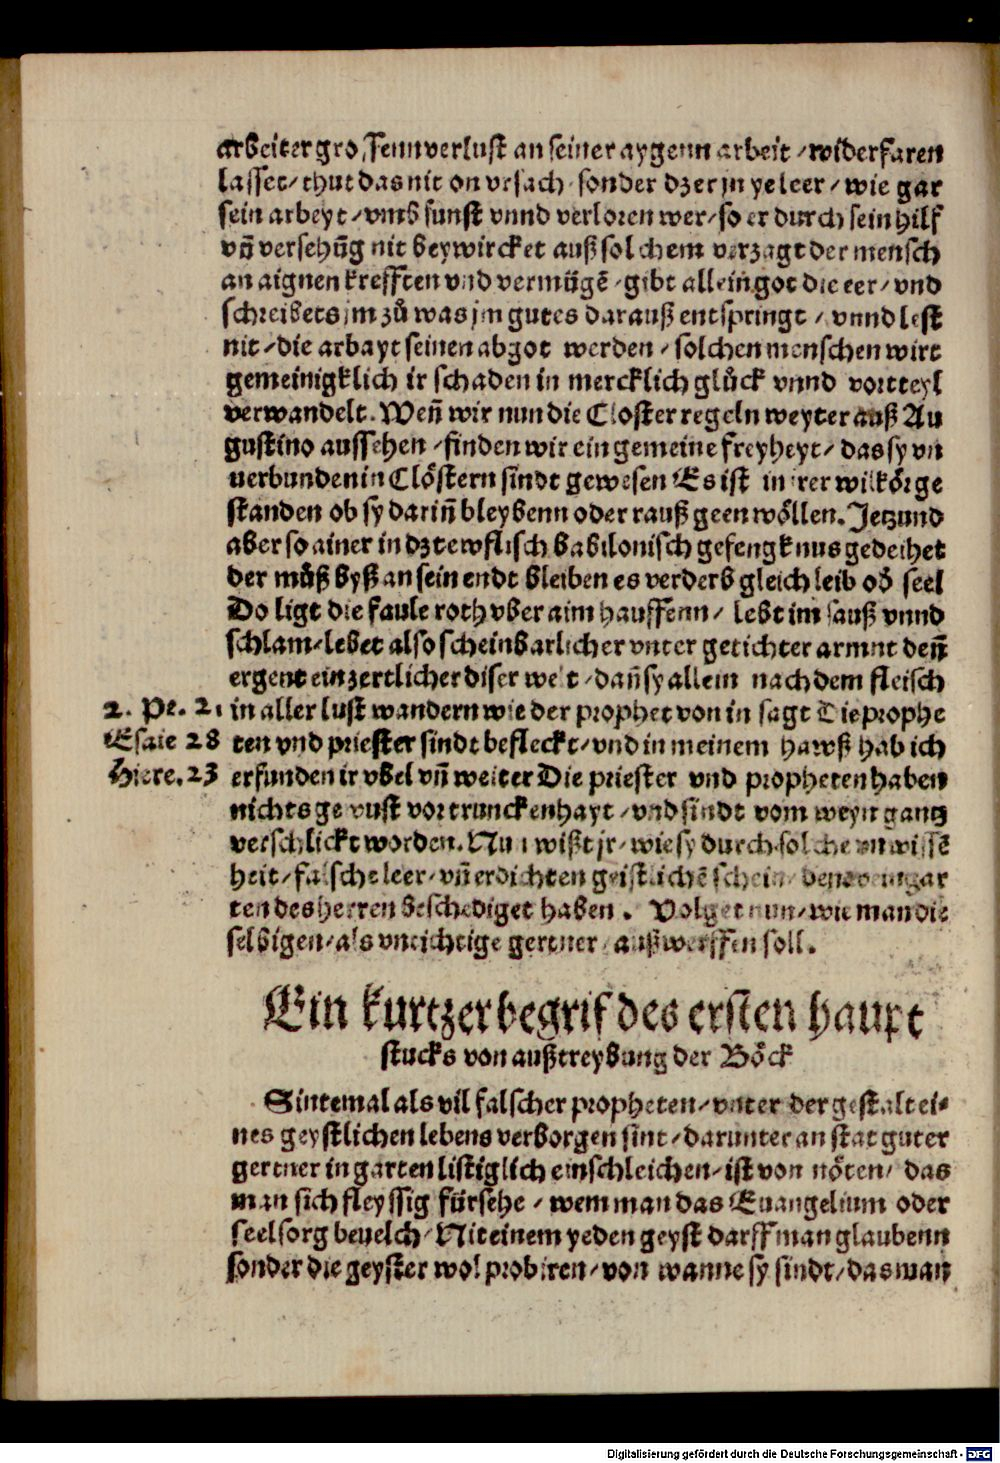 arbeiter grossenn verlust an seiner aygenn arbeit / widerfaren
lasset / thut das nit on vrsach / sonder dz er jn ye leer / wie gar
sein arbeyt / vmb sunst vnnd verloren wer / so er durch sein hilf
vñ versehūg nit beywircket auß solchem verzagt der mensch
an aignen krefften vnd vermögē / gibt allein got die eer / vnd
schreibets jm zů was jm gutes darauß entspringt / vnnd lest
nit / die arbayt seinen abgot werden / solchen menschen wirt
gemeinigklich ir schaden in mercklich glůck vnnd vortteyl
verwandelt. Weñ wir nun die Closter regeln weyter auß Au
gustino aussehen / finden wir ein gemeine freyheyt / das sy vn
uerbunden in Clöstern sindt gewesen Es ist in irer wilkör ge
standen ob sy dariñ bleybenn oder rauß geen wöllen. Jetzund
aber so ainer in dz tewflisch babilonisch gefengknus gedeihet
der můß byß an sein endt bleiben es verderb gleich leib oð seel
Do ligt die faule roth vber aim hauffenn / lebt im sauß vnnd
schlam / lebet also scheinbarlicher vnter getichter armut deñ
ergent ein zertlicher diser welt / dañ sy allein nach dem fleisch
2. Pe. 2. in aller lust wandern wie der prophet von in sagt Die prophe
Esaie 28 ten vnd priester sindt befleckt / vnd in meinem hawß hab ich
Hiere. 23 erfunden ir vbel vñ weiter Die priester vnd propheten haben
nichts gewust vor trunckenhayt / vnd sindt vom weyn gantz
verschlickt worden. Nun wißt jr / wie sy durch solche vnwissē
heit / falsche leer / vñ erdichten geistlichē schein / den weingar
ten des herren beschediget haben. Volget nun / wie man die
selbigen / als vntichtige gertner / außwerffen soll.
Ein kurtzer begrif des ersten haupt
stucks von außtreybung der Böck
Sintemal als vil falscher propheten / vnter der gestalt ei-
nes geystlichen lebens verborgen sint / darunter an stat guter
gertner in garten listiglich einschleichen / ist von nöten / das
man sich fleyssig fürsehe / wem man das Euangelium oder
seelsorg beuelch / Nit einem yeden geyst darff man glaubenn
sonder die geyster wol probiren / von wanne sy sindt / das man
Digitalisierung gefördert durch die Deutsche Forschungsgemeinschaft - DFG